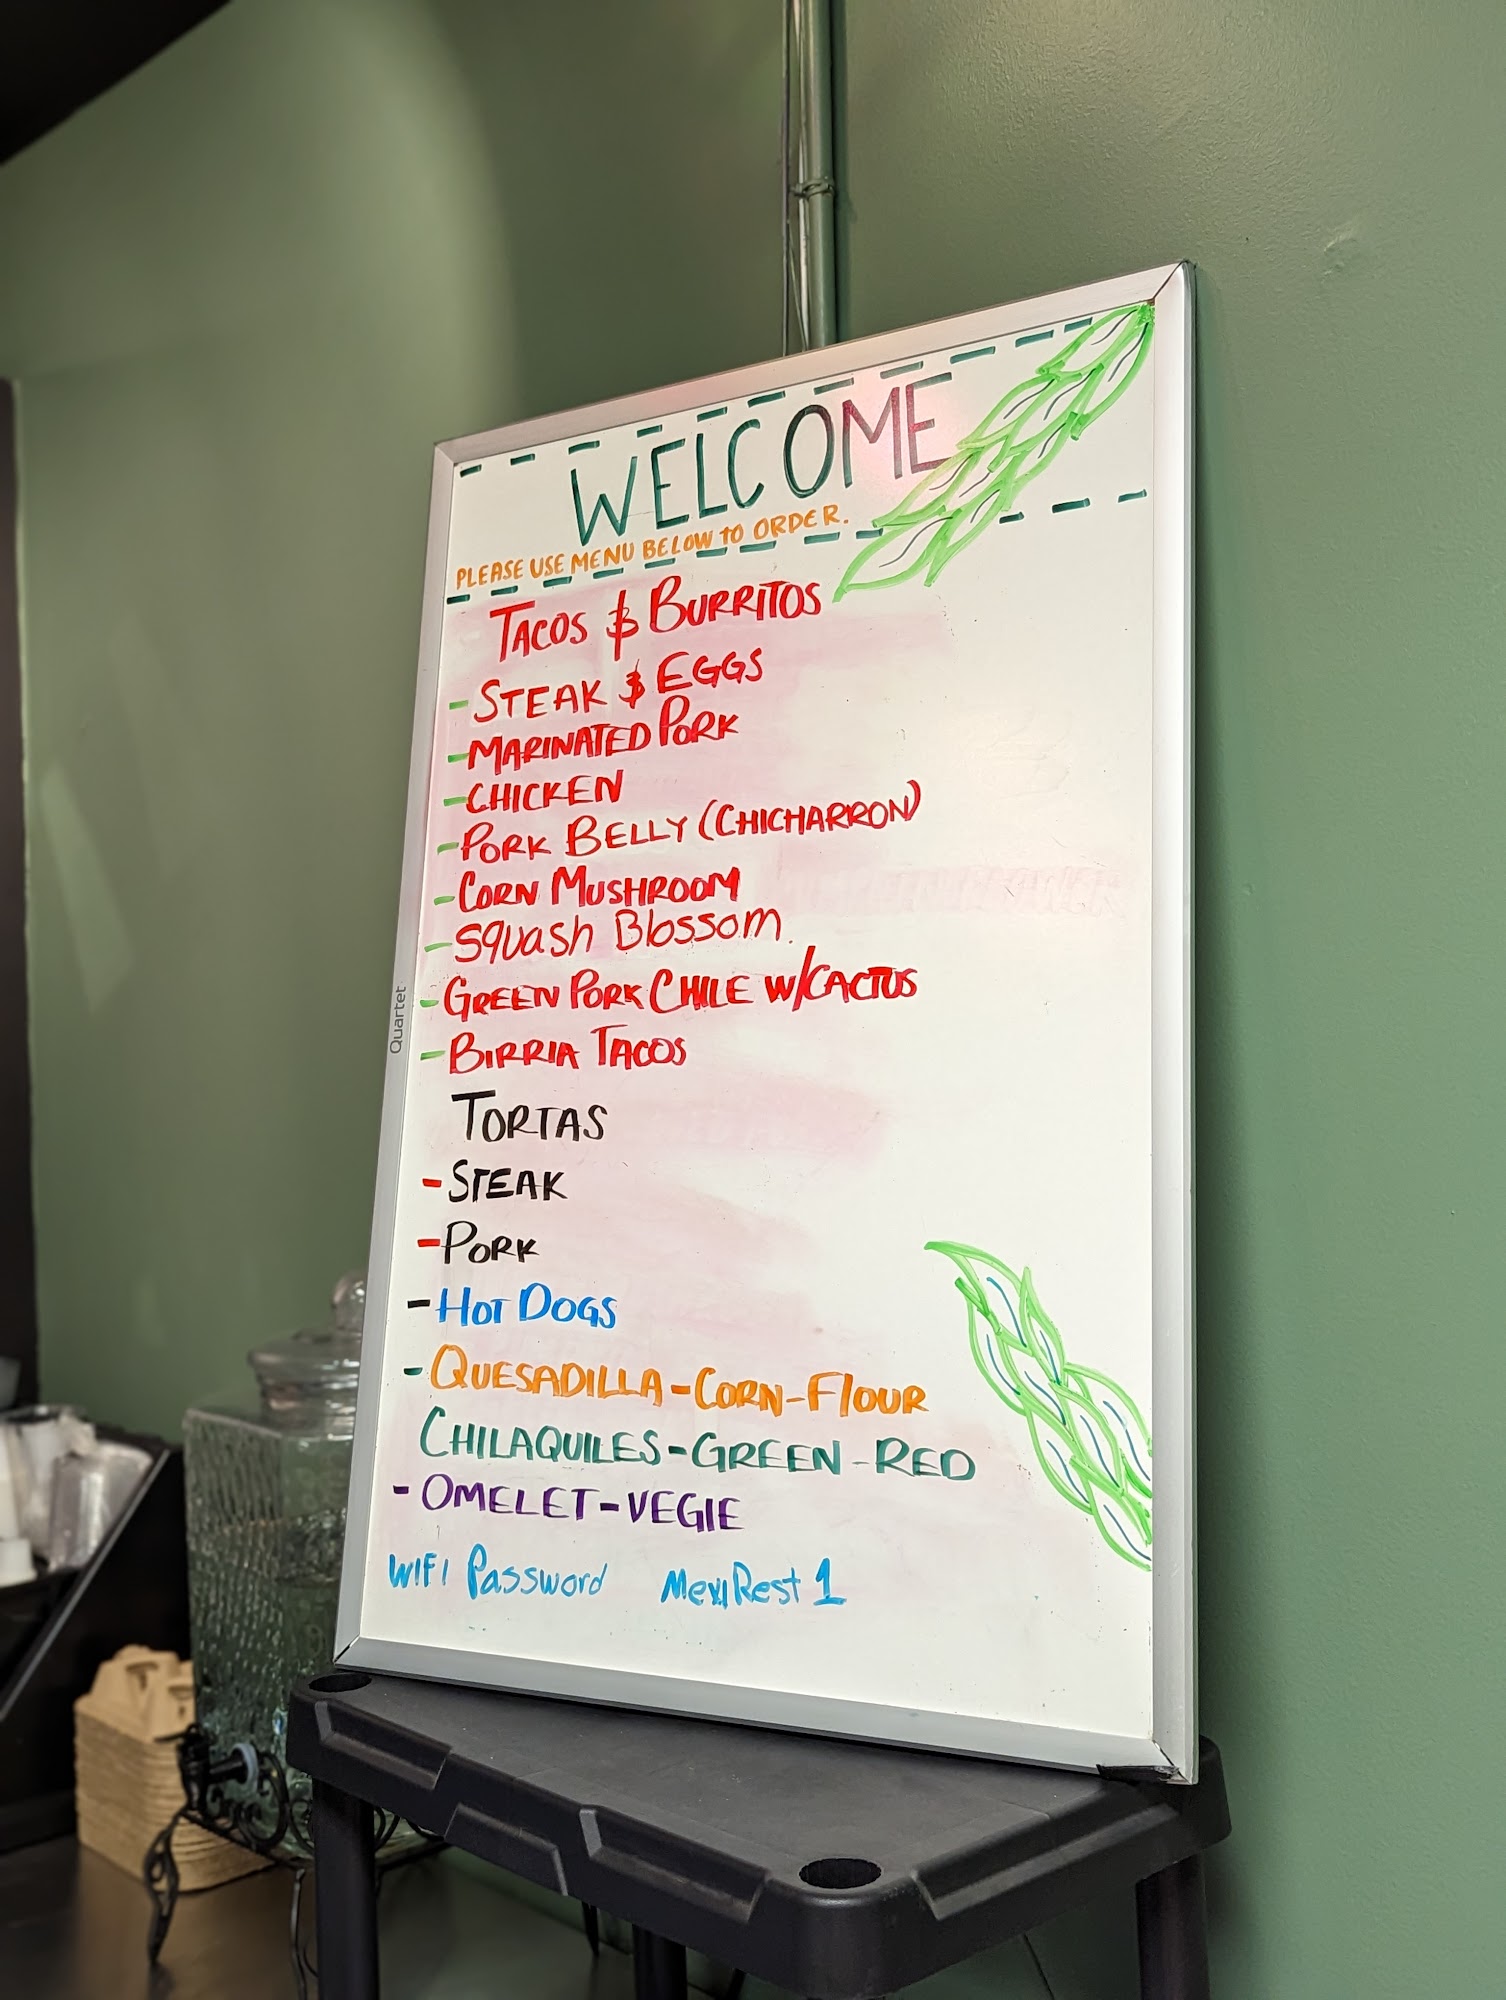 WELCOME
PLEASE USE MENU BELOW TO ORDER.
TACOS & BURRITOS
- STEAK & EGGS
- MARINATED PORK
- CHICKEN
- PORK BELLY (CHICHARRON)
- CORN MUSHROOM
- Squash Blossom
- GREEN PORK CHILE W/CACTUS
- BIRRIA TACOS
TORTAS
- STEAK
- PORK
- HOT DOGS
- QUESADILLA - CORN - FLOUR
CHILAQUILES - GREEN - RED
- OMELET - VEGIE
WIFI Password MexiRest 1
Quartet